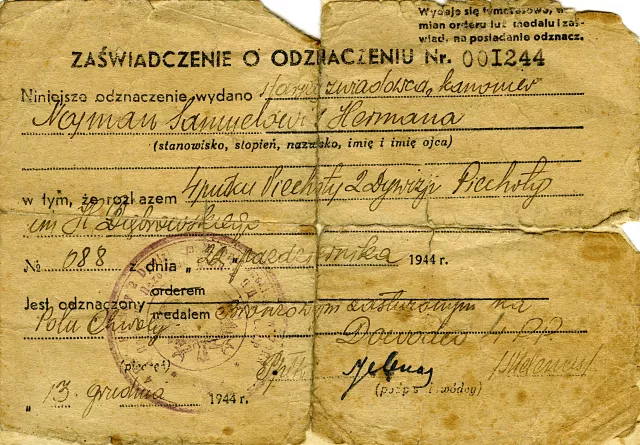 Wydaje się tymczasowo, w
mian orderu lub medalu i zaś-
wiad. na posiadanie odznacz.
ZAŚWIADCZENIE O ODZNACZENIU Nr. 001244
Niniejsze odznaczenie wydano starsz. zwiadowca, kanonier
Najman Samuelowi Hermana
(stanowisko, stopień, nazwisko, imię i imię ojca)
w tym, że rozkazem 4 pułku Piechoty 2 Dywizji Piechoty
im H. Dąbrowskiego
№ 088 z dnia „22" października 1944 r.
orderem
Jest odznaczony
medalem Bronzowym zasłużonym na
Polu Chwały
Dowódca 4 PP
(pieczęć)
(podpis dowódcy)
„13" grudnia 1944 r.